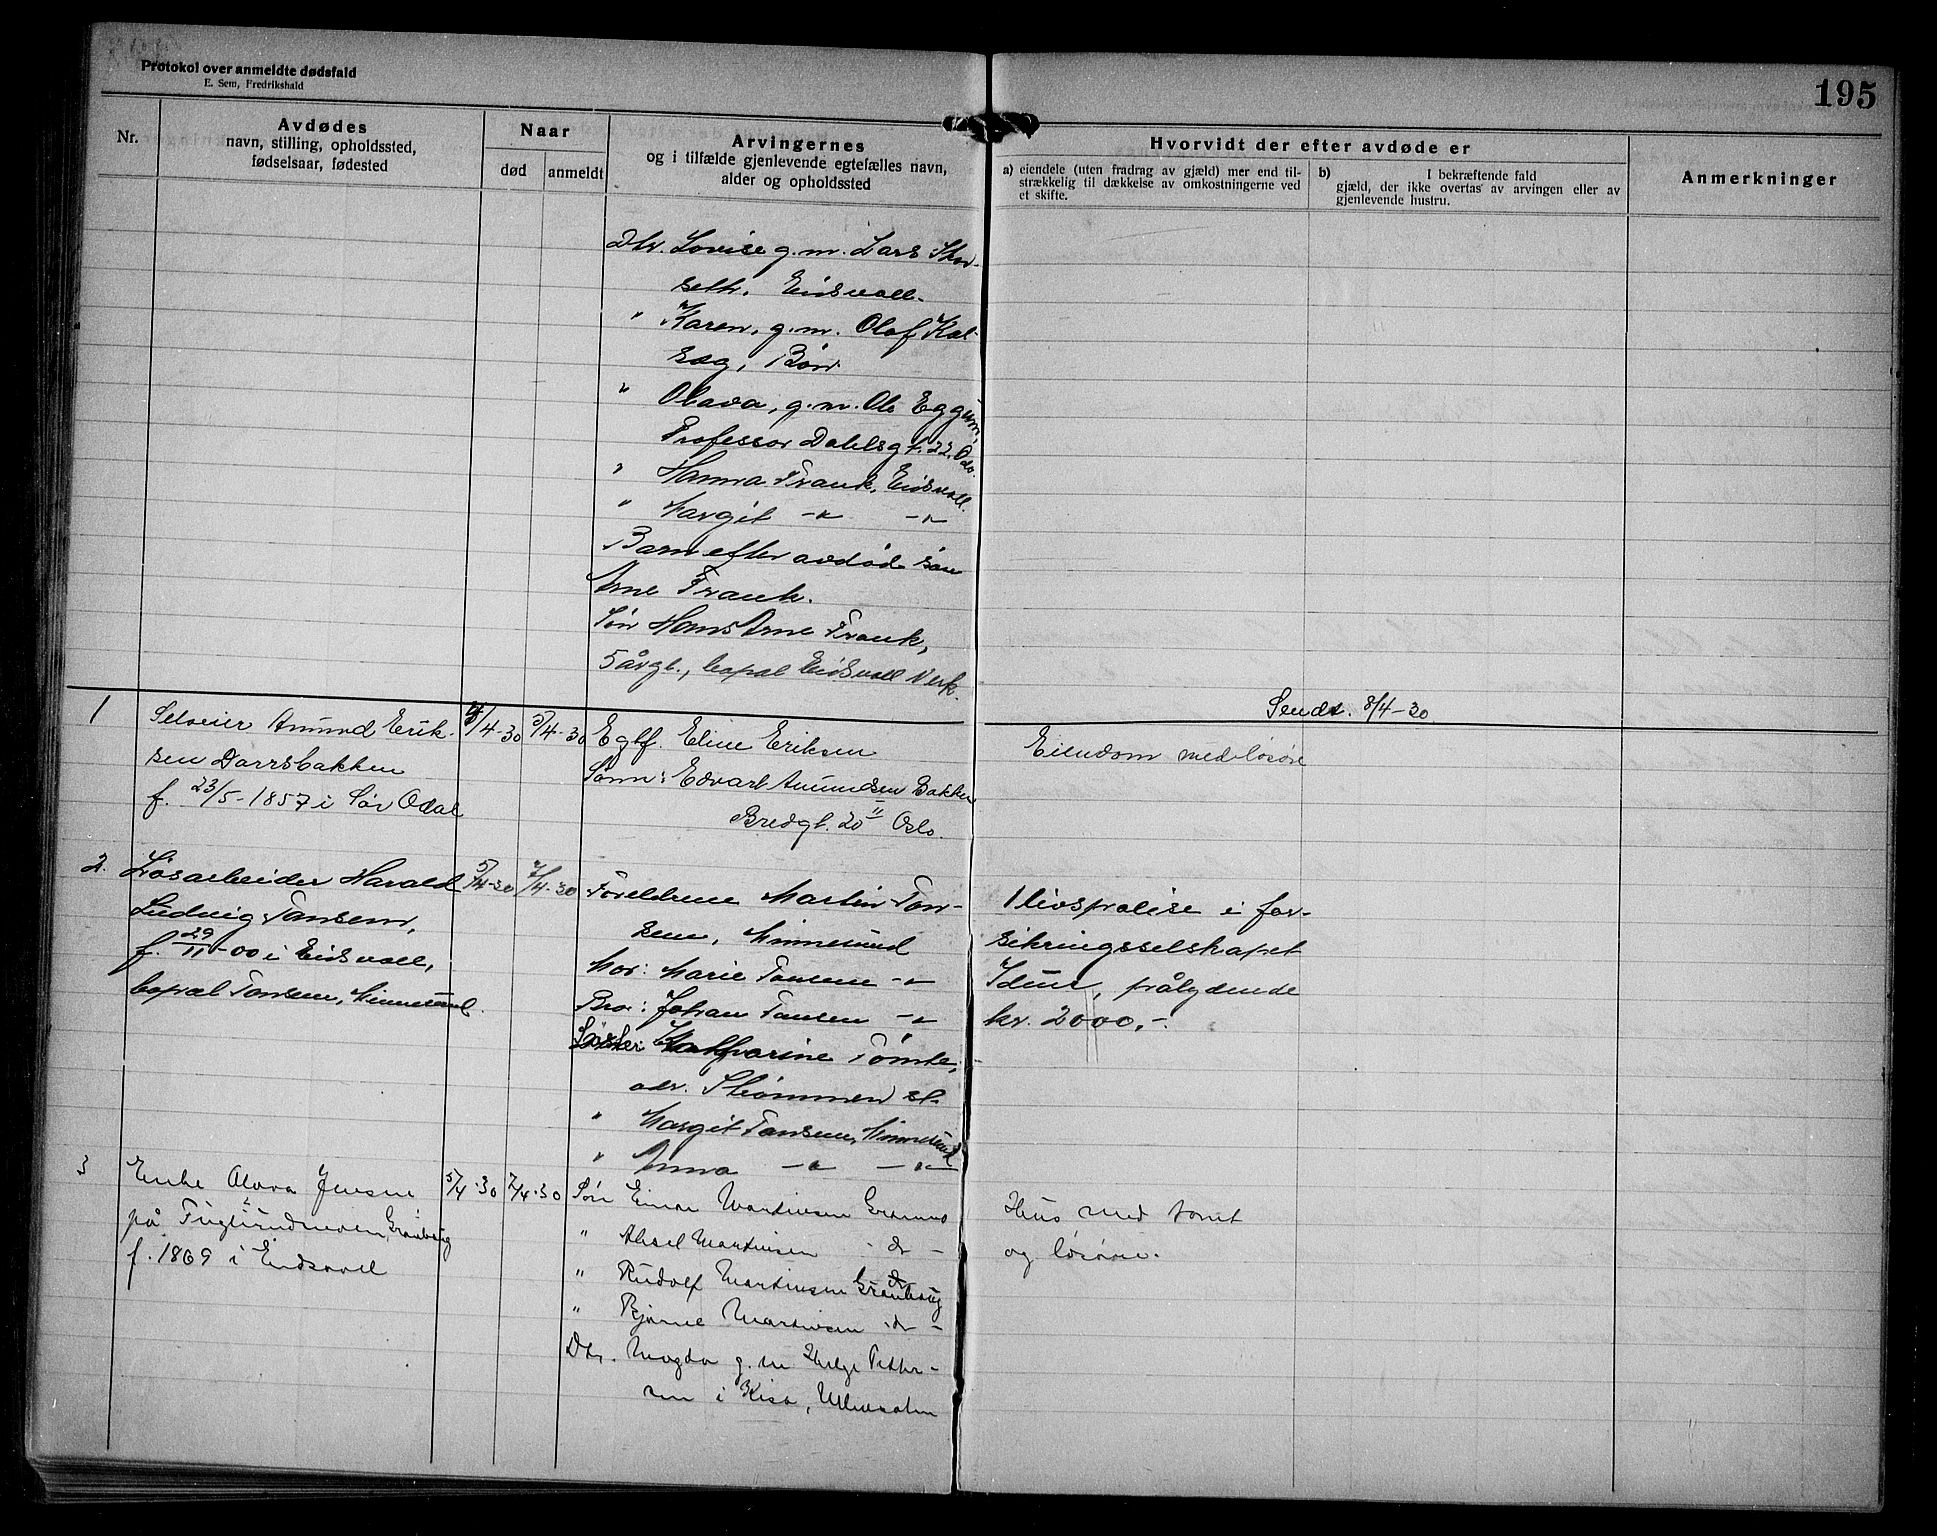 Protokol over anmeldte dødsfald
E. Sem, Fredrikshald
195
Nr.
Avdødes
navn, stilling, opholdssted,
fødselsaar, fødested
Naar
død
anmeldt
Arvingernes
og i tilfælde gjenlevende egtefælles navn,
alder og opholdssted
Hvorvidt der efter avdøde er
a) eiendele (uten fradrag av gjæld) mer end til-
strækkelig til dækkelse av omkostningerne ved
et skifte.
b) I bekræftende fald
gjæld, der ikke overtas av arvingen eller av
gjenlevende hustru.
Anmerkninger
Dtr. Lovise g.m. Lars Skor-
seth. Eidsvoll.
" Karen, g.m. Olaf Kal-
sæg, Bøn
" Olava, g.m. Ole Eggum,
Professor Dahlsgt. 22, Oslo.
" Hanna Frank, Eidsvoll.
" Margit -"- -"-
Barn efter avdød søn
Arne Frank.
Søn Hans Arne Frank,
5 årgl., bopæl Eidsvoll Verk.
Sendt. 8/4-30
1
Selveier Amund Erik-
sen Dorrsbakken
f. 23/5-1857 i Sør Odal
4/4-30
5/4-30
Egtf. Eline Eriksen
Sønn: Edvart Amundsen Bakken
Bredgt. 20 II Oslo.
Eiendom med løsøre
2.
Løsarbeider Harald
Ludvig Tansem,
f. 29/11-00 i Eidsvoll,
bopæl Tansem, Minnesund.
5/4-30
7/4-30
Foreldrene Martin Tan-
sem, Minnesund
Mor: Marie Tansem -"-
Bror: Johan Tansem -"-
Søster: Katharine Tømte,
adr. Strømmen st.
" Margit Tansem, Minnesund
" Anna -"- -"-
1 livspolise i for-
sikringsselskapet
Idun, pålydende
kr. 2000,-.
3
Enke Olava Jensen
på Fuglsundmoen, Granberg
f. 1869 i Eidsvoll
5/4-30
7/4-30
Søn Einar Martinsen
" Aksel Martinsen - do -
" Rudolf Martinsen Granberg
" Bjarne Martinsen - do -
Dtr. Magda g.m. Helge Petter-
sen i Kisa, Ullensaker
Hus med tomt
og løsøre.